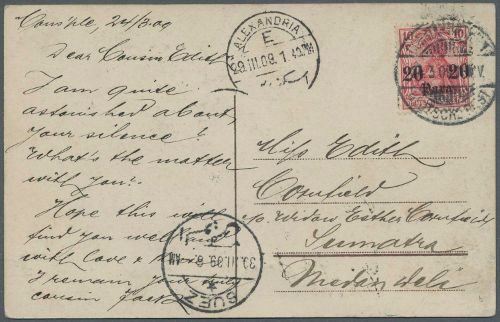 Consple, 24/3.09
Dear Cousin Edith
I am quite
astonished about
your silence!
What's the matter
with you?
Hope this will
find you well
with love &
I remain your
cousin
ALEXANDRIA
E
29.III.09. 1
10 10
20 20
SUEZ
30.III.09. 8 AM
Miss Edith
Cornfield
c/o. Widow Esther Cornfield
Sumatra
Medan Deli